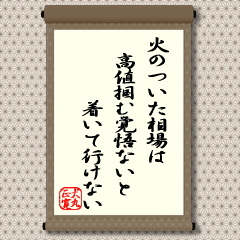 火のついた相場は
高値掴む覚悟ないと
着いて行けない